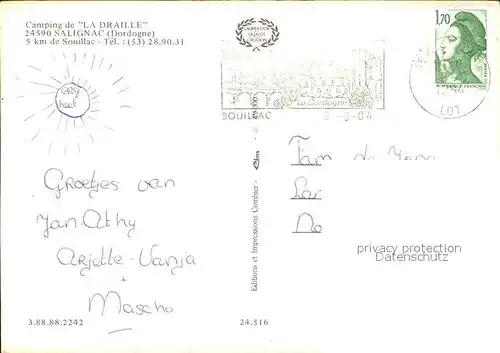 Camping de "LA DRAILLE"
24590 SALIGNAC (Dordogne)
5 km de Souillac - Tél. : (53) 28.90.31
1,70
La Dordogne
SOUILLAC
LOT
heet
Groetjes van
Jan-Athy
Arjette-Vanja
+
Mascha
Fam de
Editions et Impressions Combier -
privacy protection
Datenschutz
3.88.88.2242
24.516